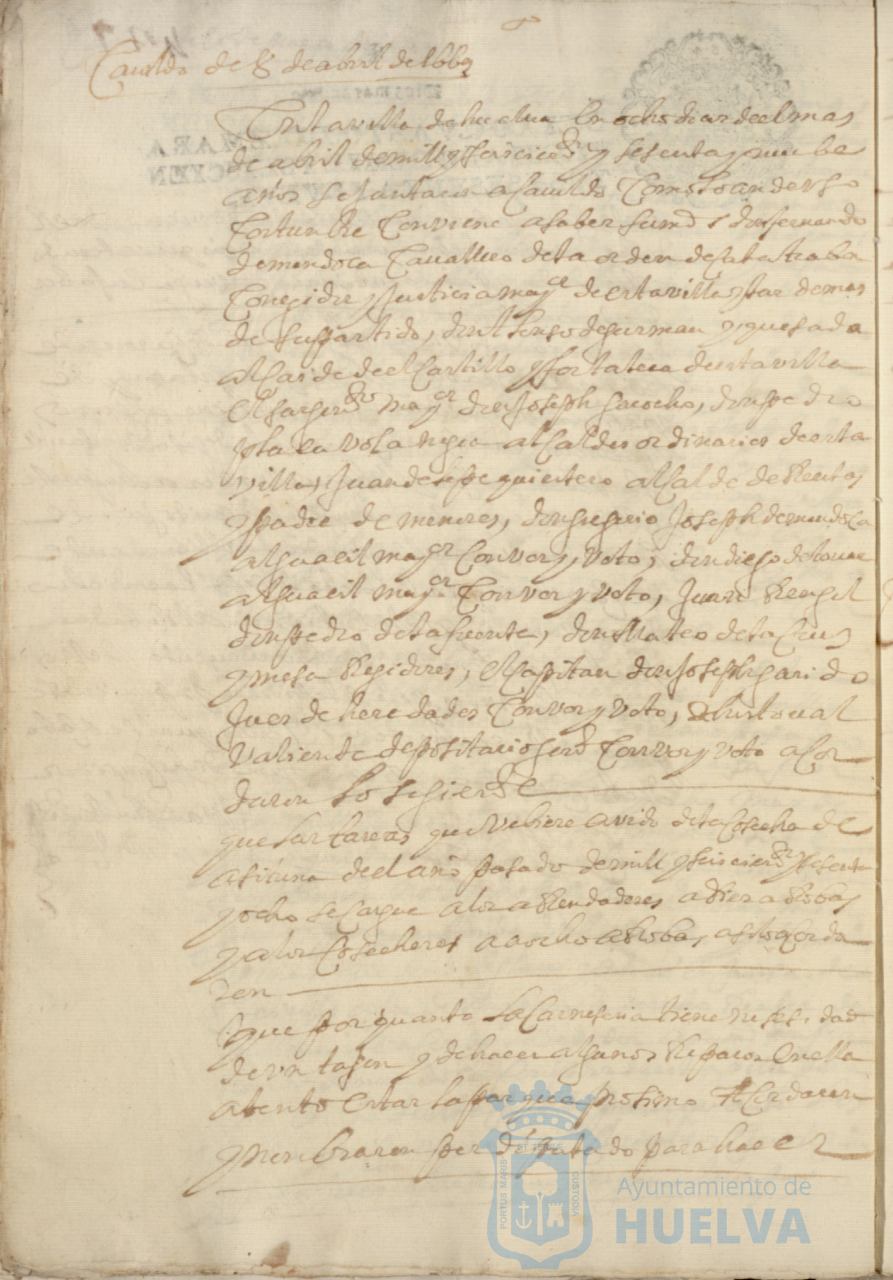 Cauildo de 8 de abril de 1669
En la villa de huelua en ocho dias del mes
de abril de mill y seiscien.os y sesenta y nuebe
años se juntaron a Cauildo Como lo an de vso
Costunbre Conviene a saber su md s.r don fernando
de mendoca Cauallero de la orden de Calatraba
Coregidor y Justicia may.or de esta villa y las demas
de su partido, don Alonso de gusman y quesada
alcaide de el Castillo y fortaleca de esta villa
el sargen.to may.or don Joseph don pedro
de la alcaldes ordinarios de esta
villa, Juan de quintero alcalde de Rentas
y padre de menores, don gregorio Joseph de mendoca
alguacil may.or Con vos y voto, don diego de
alguacil may.or Con vos y voto, Juan Rengel
don pedro de la fuente, don Mateo de la Cruz
y mesa Regidores, el Capitan don Joseph garido
Jues de heredades Con vos y voto, Christoual
Valiente depositario gen.l Con vos y voto acor
daron lo sigien.te
que las tareas que Vbiere avido de la Cosecha de
asituna del año pasado de mill y seiscien.os y sesenta
y ocho se Cargue a los aRendadores a dies aRobas
y a los Cosecheros a ocho aRobas, asi lo acorda
ron
que por quanto la Carneseria tiene nesesidad
de vn tajon y de hacer algunos Reparos en ella
atento estar la pasqua prosimo acordaron
y nonbraron por diputado para hacer
PORTUS MARIS ET TERRAE CUSTODIA
Ayuntamiento de
HUELVA